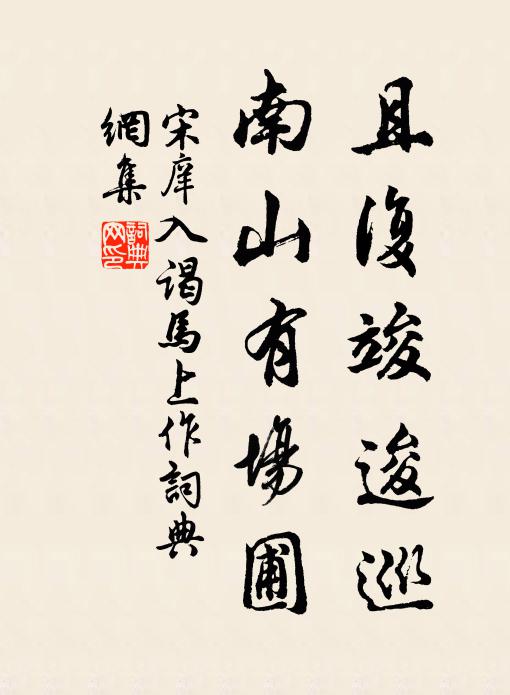 且復竣逡巡
南山有場圃
宋庠入謁馬上作詞典
網集
詞典
网印